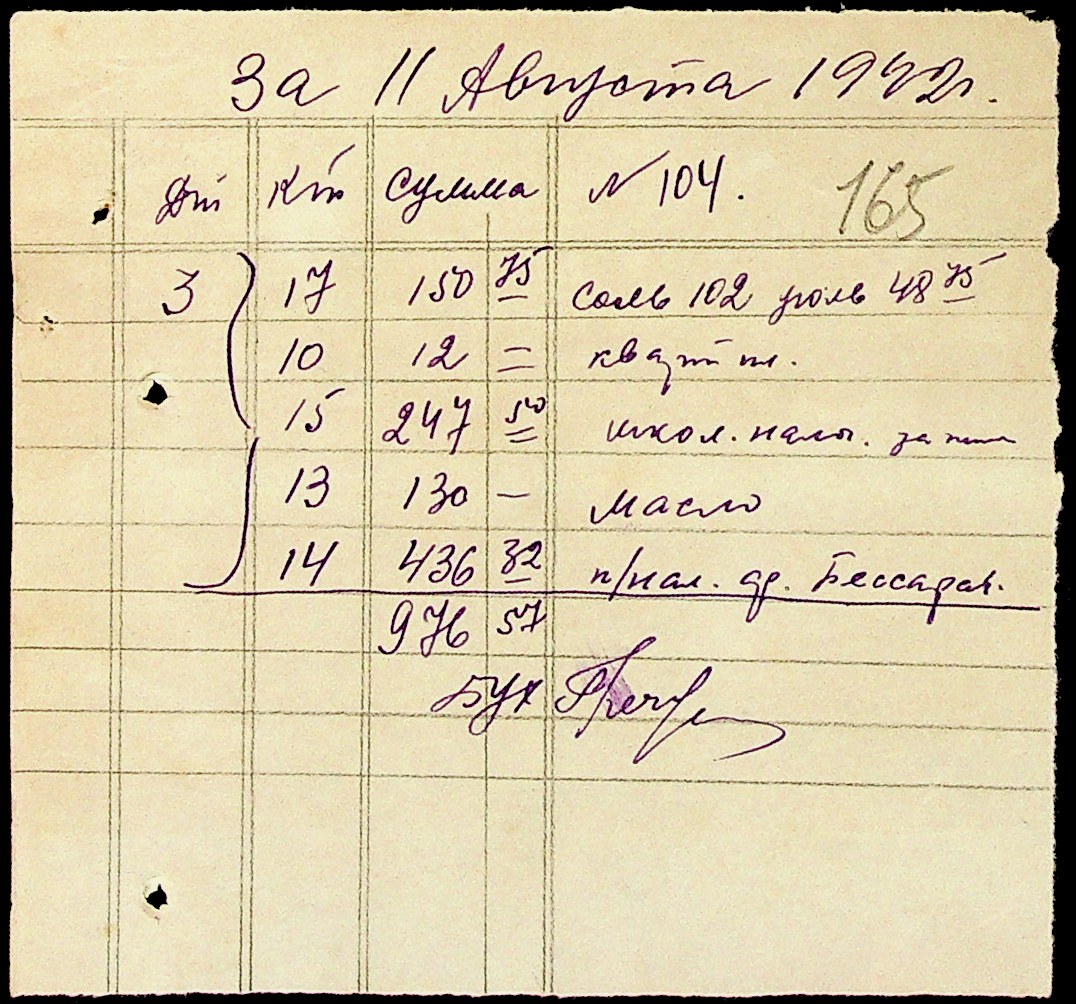 За 11 Августа 1942г.
Дт Кт Сумма № 104. 165
3 17 150 75 соль 102 уголь 48 75
10 12 = кварт пл.
15 247 50 школ. нало.
13 130 - масло
14 436 32 п/нал. ар. Бессараб.
976 57
Бух